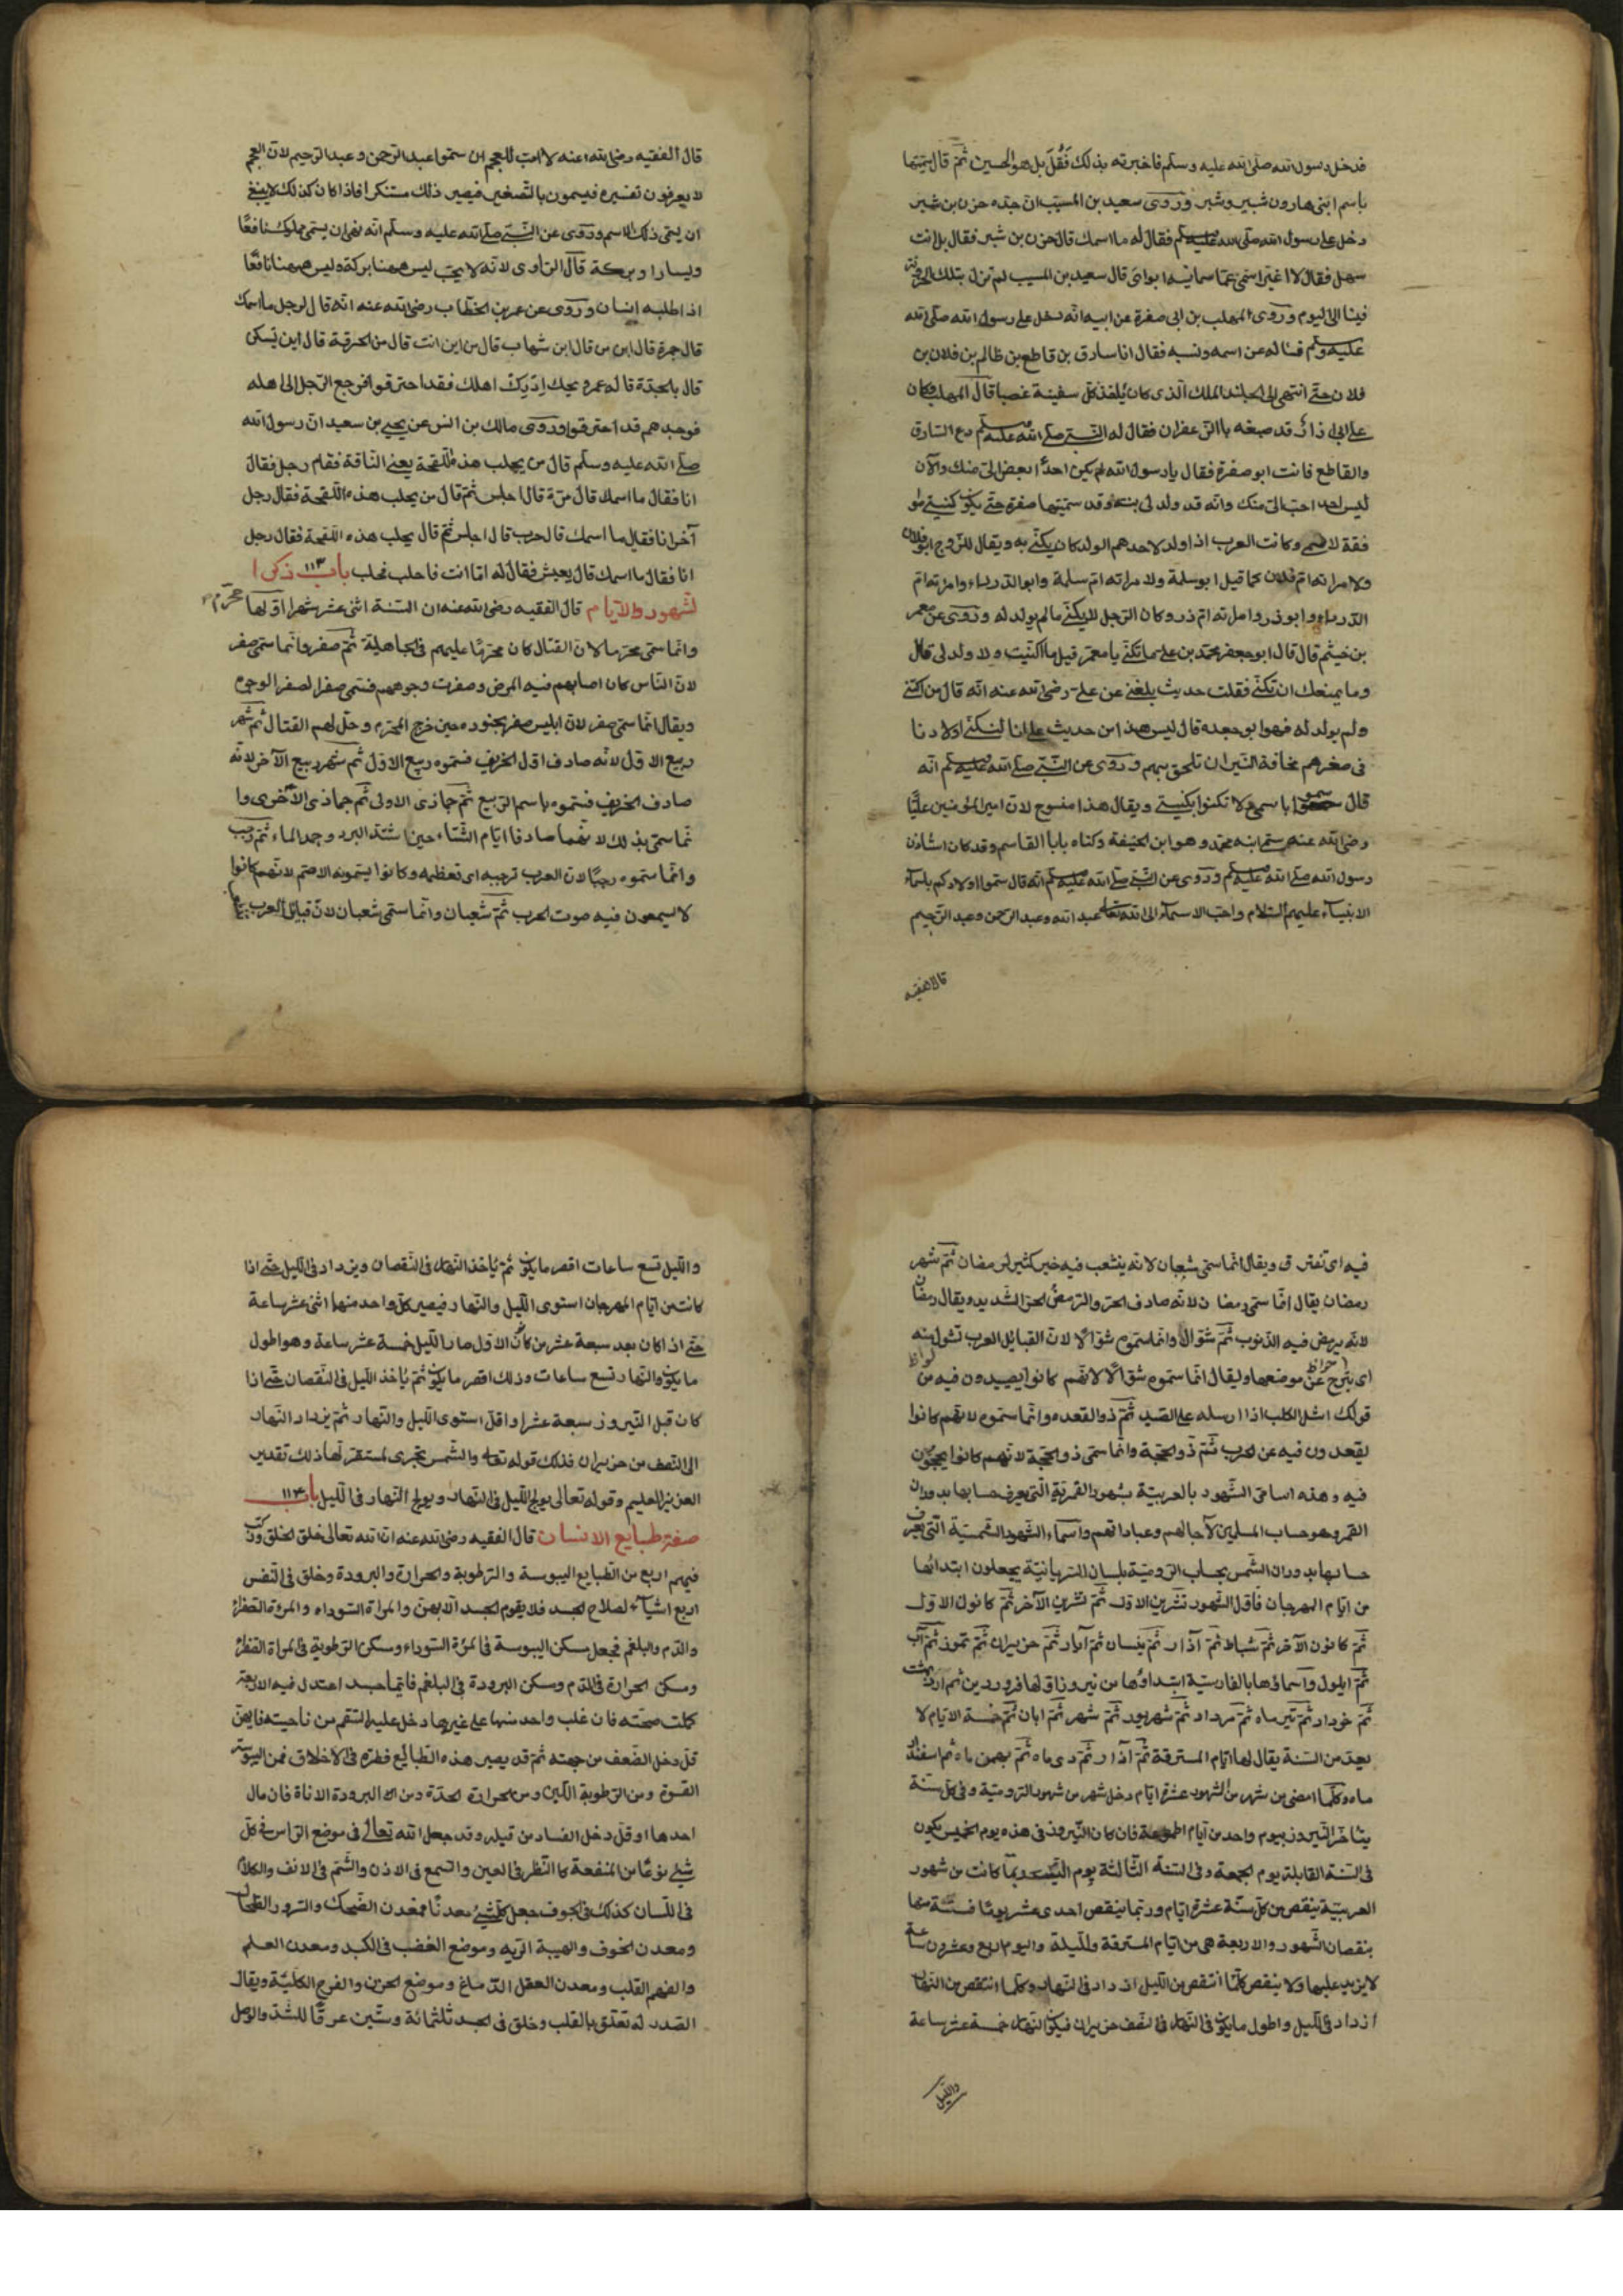 فدخل رسول الله صلى الله عليه وسلم فاخبرته بذلك فقال بل هو الحسين ثم قال سميتهما
باسم ابنى هارون شبير وشبر وروى سعيد بن المسيب ان جده حزن بن شبر
دخل على رسول الله صلى الله عليه وسلم فقال له ما اسمك قال حزن بن شبر فقال بل انت
سهل فقال لا اغير اسمى عما سمانيه ابواى قال سعيد بن المسيب لم تزل تلك الحزونة
فينا الى اليوم وروى المهلب بن ابى صفرة عن ابيه انه دخل على رسول الله صلى الله
عليه وسلم فساله عن اسمه ونسبه فقال انا سارق بن قاطع بن ظالم بن فلان بن
فلان حتى انتهى الى الجلند الملك الذى كان ياخذ كل سفينة غصبا قال المهلب وكان
على ابى ذاك قد صبغه بالزعفران فقال له النبى صلى الله عليه وسلم دع السارق
والقاطع فانت ابو صفرة فقال يا رسول الله لم يكن احدا ابغض الى منك والآن
ليس احد احب الى منك وانه قد ولد لى بنت وقد سميتها صفرة حتى يكون كنيتى
وكانت العرب اذا ولد لاحدهم الولد كان يكنى به ويقال للزوج ابو فلان
ولامراته ام فلان كما قيل ابو سلمة ولامراته ام سلمة وابو الدرداء وامرته ام
الدرداء وابو ذر وامراته ام ذر وكان الرجل لا يكنى ما لم يولد له وروى عن معمر
بن خيثم قال قال ابو جعفر محمد بن على بما تكنى يا معمر قيل ما اكتنيت ولا ولد لى قال
وما يمنعك ان تكنى فقلت حديث بلغنى عن على رضى الله عنه انه قال من اكتنى
ولم يولد له فهو ابو جعده قال ليس هذا من حديث على انا لنكنى اولادنا
فى صغرهم مخافة النيران تلحق بهم وروى عن النبى صلى الله عليه وسلم انه
قال سموا باسمى ولا تكنوا بكنيتى ويقال هذا منسوخ لان امير المؤمنين عليا
رضى الله عنه سمى ابنه محمد وهو ابن الحنيفة وكناه بابا القاسم وقد كان استاذن
رسول الله صلى الله عليه وسلم وروى عن النبى صلى الله عليه وسلم انه قال سموا اولادكم باسماء
الانبياء عليهم السلام واحب الاسماء الى الله تعالى عبد الله وعبد الرحمن وعبد الرحيم
قال الفقيه
قال الفقيه رضى الله عنه لا احب للعجم ان سموا عبد الرحمن وعبد الرحيم لان العجم
لا يعرفون تفسيره فيسمون بالتصغير فيصير ذلك مستنكرا فاذا كان كذلك لا ينبغى
ان يسمى ذلك الاسم وروى عن النبى صلى الله عليه وسلم انه نهى ان يسمى مملوك نافعا
ويسارا وبركة قال الراوى لانه لا يحب ليس ههنا بركة وليس ههنا نافعا
اذا طلبه انسان وروى عن عمر بن الخطاب رضى الله عنه انه قال لرجل ما اسمك
قال جمرة قال ابن من قال ابن شهاب قال من اين انت قال من الحرقة قال اين تسكن
قال بالحدة قال له عمر ويحك ادرك اهلك فقد احترقوا فرجع الرجل الى اهله
فوجدهم قد احترقوا وروى مالك بن انس عن يحيى بن سعيد ان رسول الله
صلى الله عليه وسلم قال من يحلب هذه اللقحة يعنى الناقة فقام رجل فقال
انا فقال ما اسمك قال مرة قال اجلس ثم قال من يحلب هذه اللقحة فقال رجل
آخر انا فقال ما اسمك قال حرب قال اجلس ثم قال يحلب هذه اللقحة فقال رجل
انا فقال ما اسمك قال يعيش فقال له اما انت فاحلب فحلب باب ١١٣ ذكر ا
لشهور والايام قال الفقيه رضى الله عنه ان السنة اثنى عشر شهرا اولها محرم
وانما سمى محرما لان القتال كان محرما عليهم فى الجاهلية ثم صفر وانما سمى صفر
لان الناس كان اصابهم فيه المرض وصفرت وجوههم فسمى صفرا لصفر الوجوه
ويقال انما سمى صفر لان ابليس صفر بجنوده حين خرج المحرم وحل لهم القتال ثم شهر
ربيع الاول لانه صادف اول الخريف فسموه ربيع الاول ثم شهر ربيع الآخر لانه
صادف الخريف فسموه باسم الربيع ثم جماذى الاولى ثم جماذى الآخرى وا
نما سمى بذلك لانهما صادفا ايام الشتاء حين اشتد البرد وجمد الماء ثم رجب
وانما سموه رجبا لان العرب ترجبه اى تعظمه وكانوا يسمونه الاصم لانهم كانوا
لا يسمعون فيه صوت الحرب ثم شعبان وانما سمى شعبان لان قبائل العرب
فيه اى تفترق ويقال انما سمى شعبان لانه ينشعب فيه خير كثير لرمضان ثم شهر
رمضان يقال انما سمى رمضان لانه صادف الحر والرمض الحر الشديد ويقال رمضان
لانه يرمض فيه الذنوب ثم شوال وانما سموه شوالا لان القبائل العرب تشول منه
اى يبرح عن موضعها ويقال انما سموه شوالا لانهم كانوا يصيدون فيه من
قولك اشل الكلب اذا ارسله على الصيد ثم ذو القعدة وانما سموه لانهم كانوا
يقعدون فيه عن الحرب ثم ذو الحجة وانما سمى ذو الحجة لانهم كانوا يحجون
فيه وهذه اسامى الشهور بالعربية شهور القمرية التى يعرف حسابها بدوران
القمر وهو حساب المسلمين لآجالهم وعباداتهم واسماء الشهور الشمسية التى يعرف
حسابها بدوران الشمس بحساب الرومية بلسان السريانية يجعلون ابتدائها
من ايام المهرجان فاول الشهور تشرين الاول ثم تشرين الآخر ثم كانون الاول
ثم كانون الآخر ثم شباط ثم آذار ثم نيسان ثم آيار ثم حزيران ثم تموز ثم آب
ثم ايلول واسمائها بالفارسية ابتداؤها من نيروز اولها فروردين ثم اردبهشت
ثم خرداد ثم تير ماه ثم مرداد ثم شهريور ثم مهر ثم ابان ثم خمسة الايام لا
يعد من السنة يقال لها ايام المسترقة ثم آذار ثم دى ماه ثم بهمن ماه ثم اسفندار
ماه وكلما مضى من شهر من الشهور عشرة ايام دخل شهر من شهور الرومية وفى كل سنة
يتأخر النيروز بيوم واحد من ايام الجمعة فان كان النيروز فى هذه يوم الخميس يكون
فى السنة القابلة يوم الجمعة وفى السنة الثالثة يوم السبت وربما كانت من شهور
العربية ينقص من كل سنة عشرة ايام وربما ينقص احدى عشر يوما فستة منها
بنقصان الشهور والاربعة هى من ايام المسترقة والليلة واليوم اربع وعشرون ساعة
لا يزيد عليها ولا ينقص كلما انتقص من الليل ازداد فى النهار وكلما انتقص من النهار
ازداد فى الليل واطول ما يكون فى النهار فى النصف حزيران فيكون النهار خمسة عشر ساعة
والليل
والليل تسع ساعات اقصر ما يكون ثم يأخذ النهار فى النقصان ويزداد فى الليل حتى اذا
كانت من ايام المهرجان استوى الليل والنهار فيصير كل واحد منهما اثنى عشر ساعة
حتى اذا كان بعد سبعة عشر من كانون الاول صار الليل خمسة عشر ساعة وهو اطول
ما يكون والنهار تسع ساعات وذلك اقصر ما يكون ثم يأخذ الليل فى النقصان حتى اذا
كان قبل النيروز سبعة عشر او اقل استوى الليل والنهار ثم يزداد النهار
الى النصف من حزيران فذلك قوله تعالى والشمس تجرى لمستقر لها ذلك تقدير
العزيز العليم وقوله تعالى يولج الليل فى النهار ويولج النهار فى الليل باب ١١٤
صفة طبايع الانسان قال الفقيه رضى الله عنه ان الله تعالى خلق الخلق وركب
فيهم اربع من الطبايع اليبوسة والرطوبة والحرارة والبرودة وخلق فى النفس
اربع اشياء لصلاح الجسد فلا يقوم الجسد الا بهن والمرة السوداء والمرة الصفراء
والدم والبلغم فجعل مسكن اليبوسة فى المرة السوداء ومسكن الرطوبة فى المرة الصفراء
ومسكن الحرارة فى الدم ومسكن البرودة فى البلغم فايما جسد اعتدل فيه الاربعة
كملت صحته فان غلب واحد منها على غيرها دخل عليه السقم من ناحيته فايهن
قل دخل الضعف من جهته ثم قد يصير هذه الطبايع فطرة فى الاخلاق فمن اليبوسة
القسوة ومن الرطوبة اللين ومن الحرارة الحدة ومن البرودة الاناة فان مال
احدها او قل دخل الفساد من قبله وقد جعل الله تعالى فى موضع الراس فى كل
شئ نوعا من المنفعة كالنظر فى العين والسمع فى الاذن والشم فى الانف والكلام
فى اللسان كذلك فى الجوف جعل كل شئ معدنا فمعدن الضحك والسرور الطحال
ومعدن الخوف والهيبة الريه وموضع الغضب فى الكبد ومعدن العلم
والفهم القلب ومعدن العقل الدماغ وموضع الحزن والفرح الكلية ويقال
الصدر له تعلق بالقلب وخلق فى الجسد ثلثمائة وستين عرقا للشد والوصل